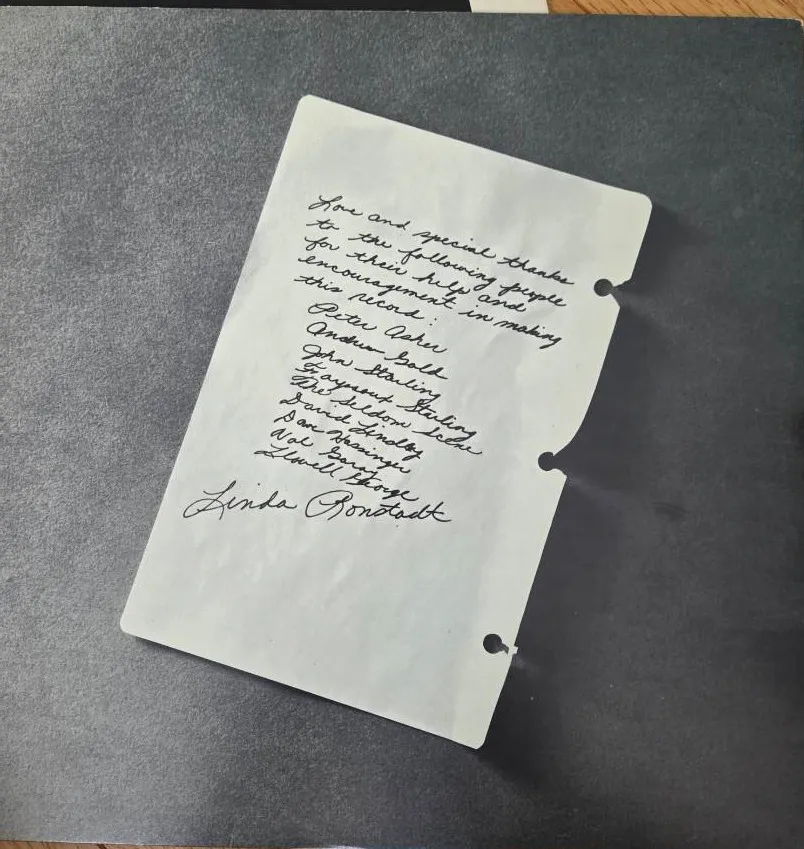 Love and special thanks
to the following people
for their help and
encouragement in making
this record:
Peter Asher
Andrew Gold
John Starling
Fayssoux Starling
The Seldom Scene
David Lindley
Dan Hosinger
Val Garay
Llowell George
Linda Ronstadt